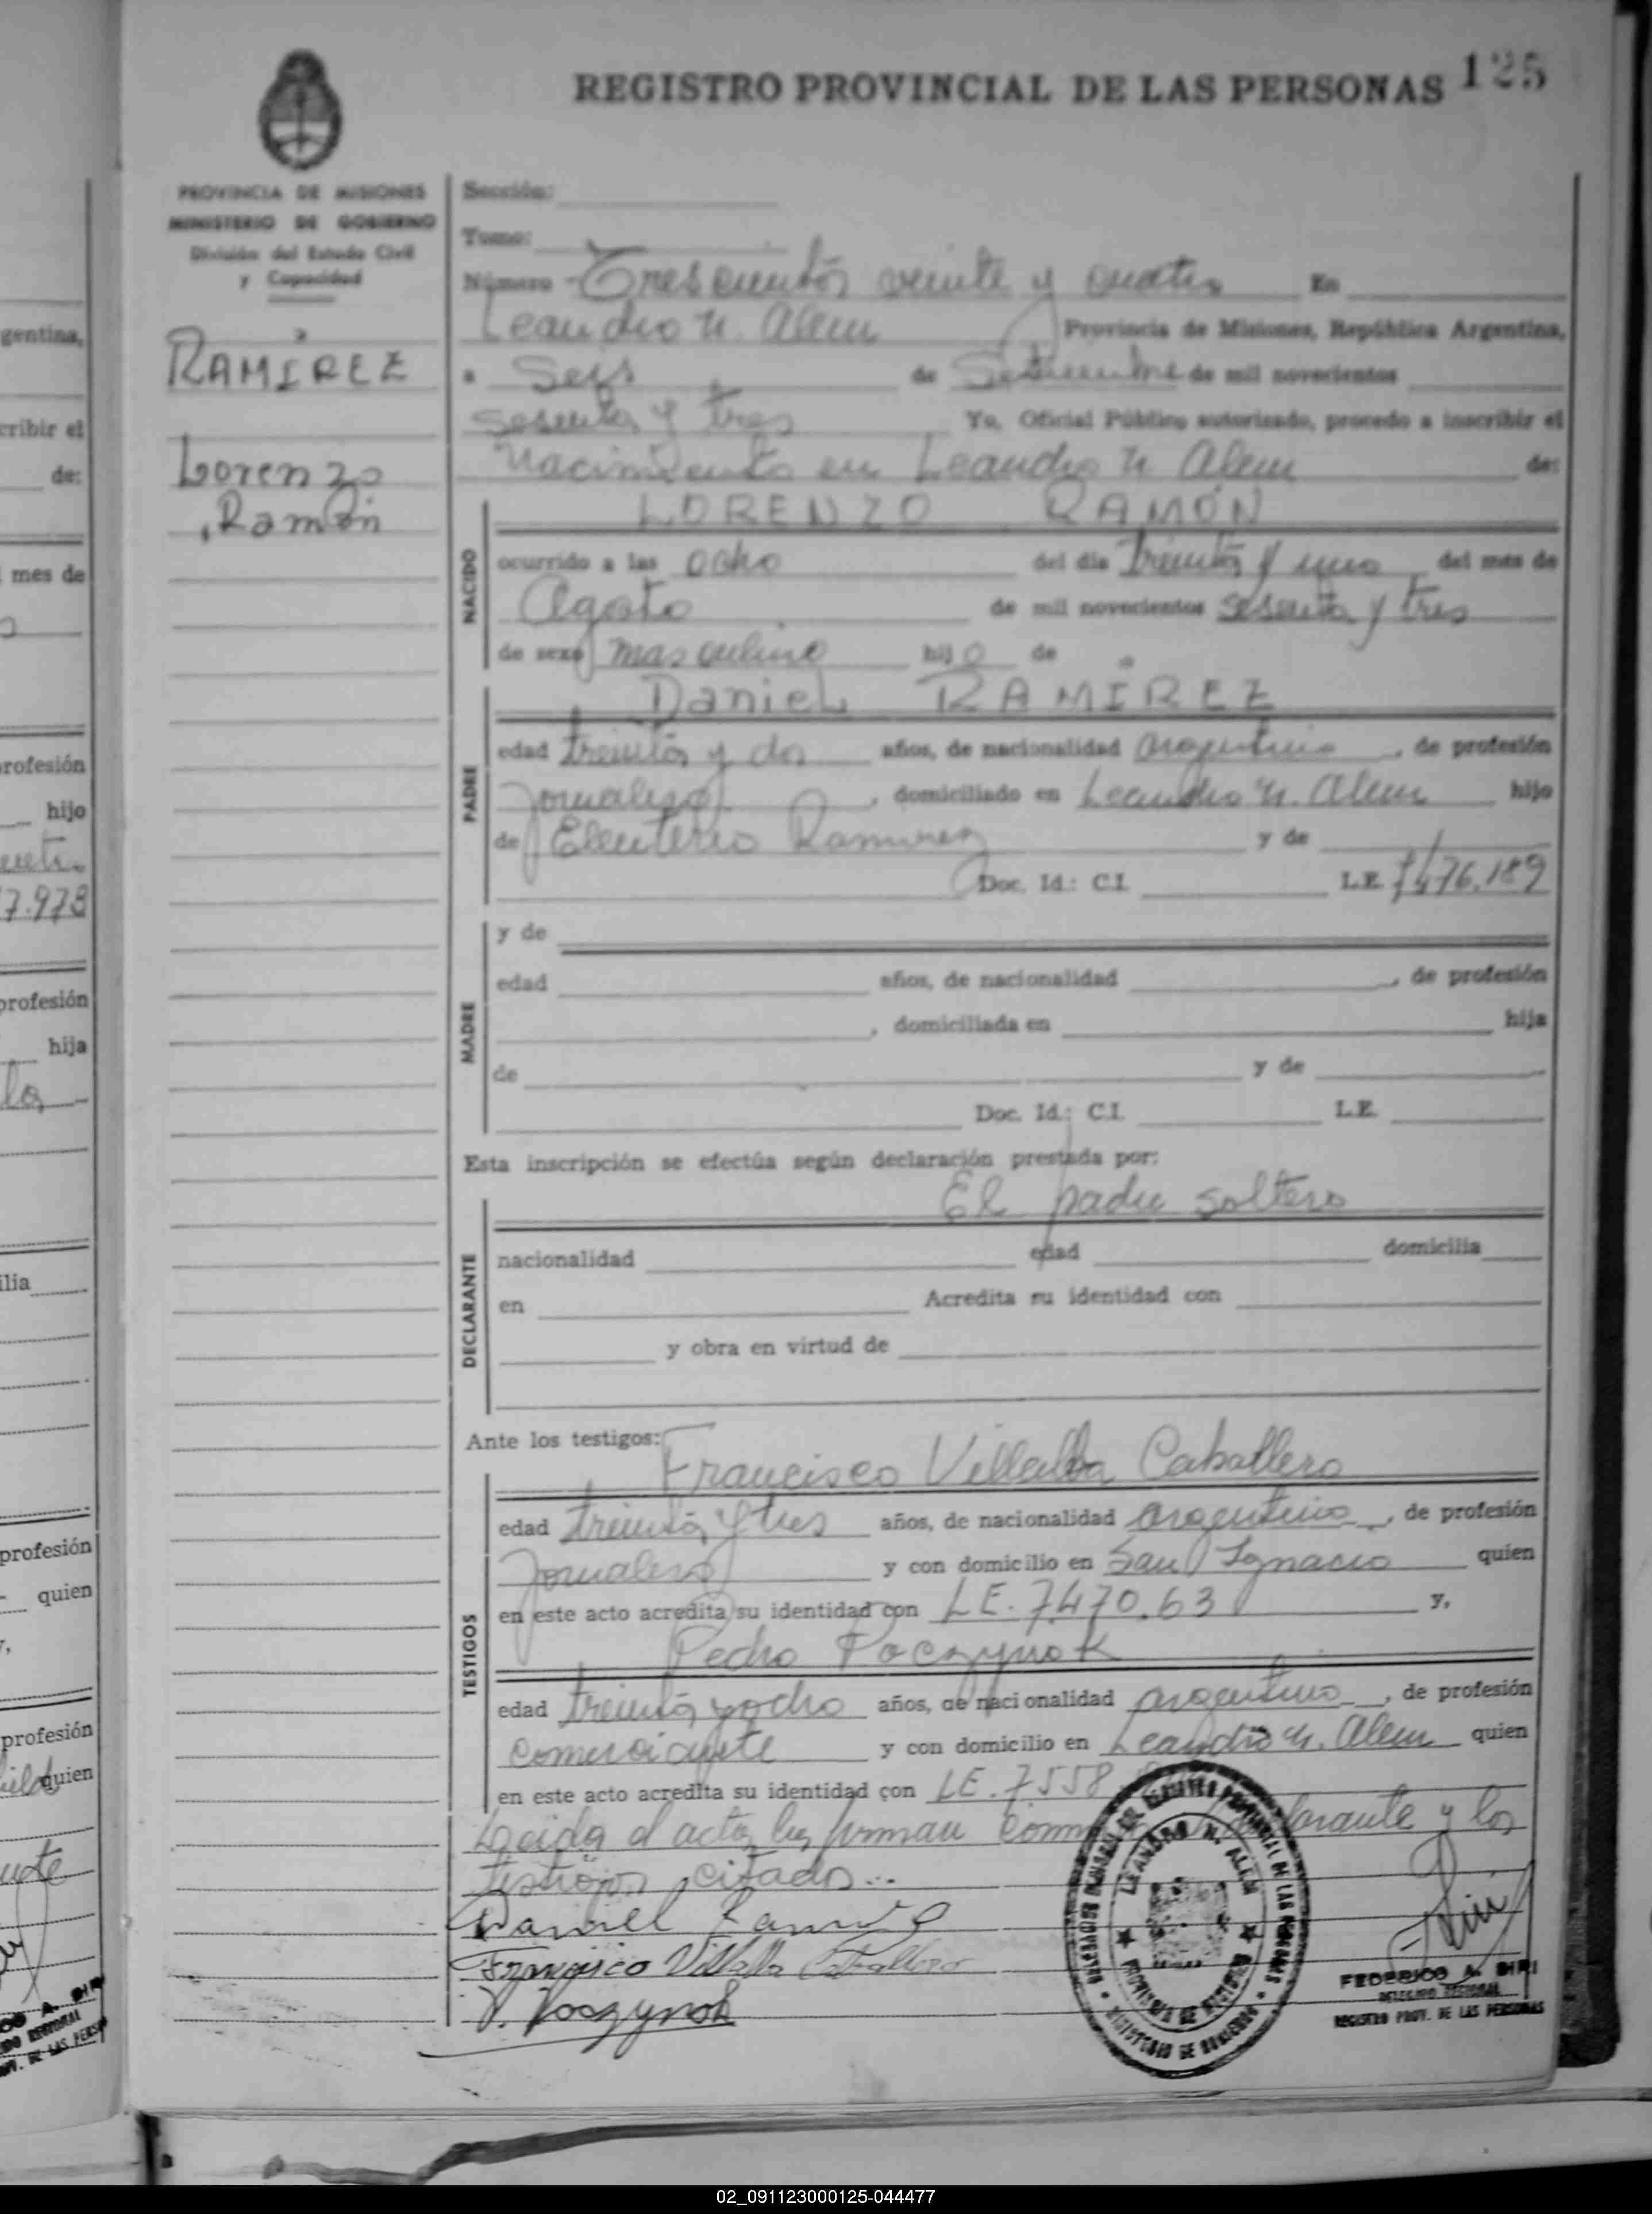 REGISTRO PROVINCIAL DE LAS PERSONAS 125
PROVINCIA DE MISIONES
MINISTERIO DE GOBIERNO
División del Estado Civil
y Capacidad
RAMÍREZ
Lorenzo
Ramón
Sección:
Tomo:
Número Trescientos veinte y cuatro En
Leandro N. Alem Provincia de Misiones, República Argentina,
a Seis de Setiembre de mil novecientos
sesenta y tres Yo, Oficial Público autorizado, procedo a inscribir el
Nacimiento en Leandro N. Alem de:
LORENZO RAMÓN
NACIDO
ocurrido a las ocho del día treinta y uno del mes de
Agosto de mil novecientos sesenta y tres
de sexo masculino hijo de
Daniel RAMÍREZ
PADRE
edad treinta y dos años, de nacionalidad argentino, de profesión
Jornalero, domiciliado en Leandro N. Alem hijo
de Eleuterio Ramirez y de
Doc. Id.: C.I. L.E. 7476.189
MADRE
y de
edad años, de nacionalidad , de profesión
, domiciliada en hija
de y de
Doc. Id.: C.I. L.E.
Esta inscripción se efectúa según declaración prestada por:
El padre soltero
DECLARANTE
nacionalidad edad domicilia
en Acredita su identidad con
y obra en virtud de
Ante los testigos:
Francisco Villalba Caballero
TESTIGOS
edad treinta y tres años, de nacionalidad argentino, de profesión
Jornalero y con domicilio en San Ignacio quien
en este acto acredita su identidad con LE. 7.470.63 y,
Pedro Poczynok
edad treinta y ocho años, de nacionalidad argentino, de profesión
comerciante y con domicilio en Leandro N. Alem quien
en este acto acredita su identidad con LE. 7558
Leida el acta la firman y los
testigos citados..
Daniel Ramirez
Francisco Villalba Caballero
P. Poczynok
LEANDRO N. ALEM
PROVINCIA DE MISIONES
MINISTERIO DE GOBIERNO
FEDERICO A.
DELEGADO REGIONAL
REGISTRO PROV. DE LAS PERSONAS
gentina,
cribir el
de:
mes de
profesión
hijo
7.973
profesión
hija
ilia
profesión
quien
profesión
quien
02_091123000125-044477